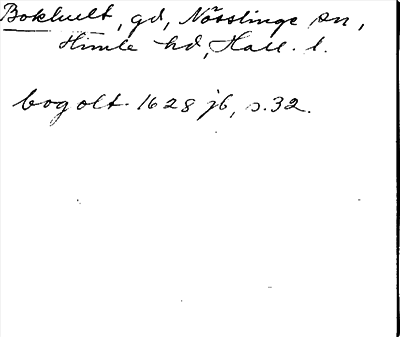 Bokhult, gd, Nösslinge sn,
Himle hd, Hall. l.
bogolt. 1628 jb, s. 32.